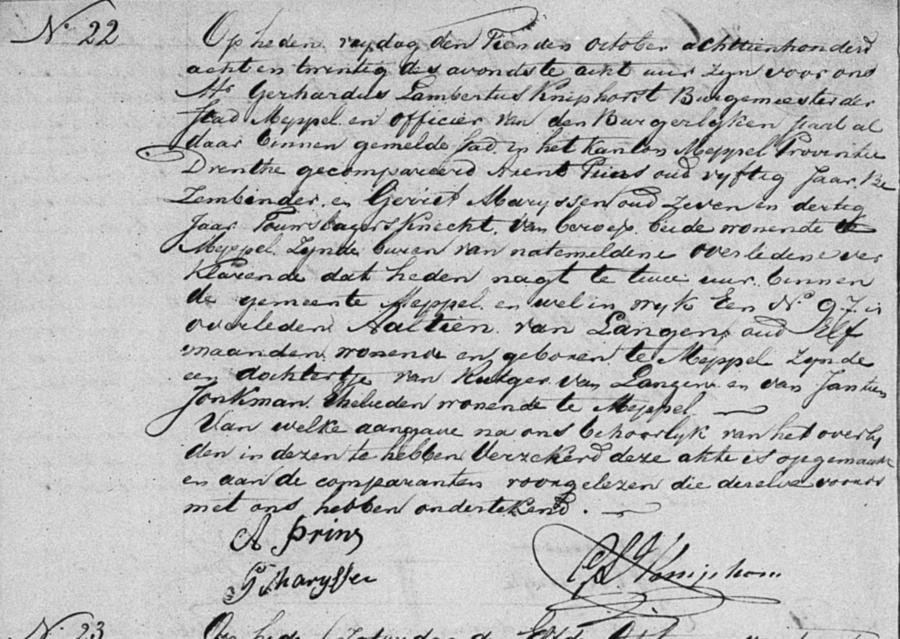 No. 22
Op heden vrydag den Tienden october achttienhonderd
acht en twintig des avonds te acht uur zyn voor ons
Mr Gerhardus Lambertus Kniphorst Burgemeester der
Stad Meppel en officier van den Burgerlyken staat al
daar binnen gemelde stad in het kanton Meppel Provintie
Drenthe gecompareerd Arent Prins oud vyftig Jaar
en Gerrit Maryssen oud Zeven en dertig
Jaar Knecht van beroep beide wonende te
Meppel Zynde buren van natemeldene overledene ver
klarende dat heden nagt te twee uur binnen
de gemeente Meppel en wel in wyk Een No 97 is
overleden Aaltien van Langen oud Elf
maanden wonende en geboren te Meppel Zynde
een dochtertje van Rutger van Langen en van Jantien
Jonkman Ehelieden wonende te Meppel
Van welke aangave na ons behoorlyk van het overly
den in dezen te hebben Verzekerd deze akte is opgemaakt
en aan de comparanten voorgelezen die dezelve
met ons hebben onderteekend.
A Prins
G Maryssen
GL Kniphorst
No. 23
Op heden Zaturdag de Elfde